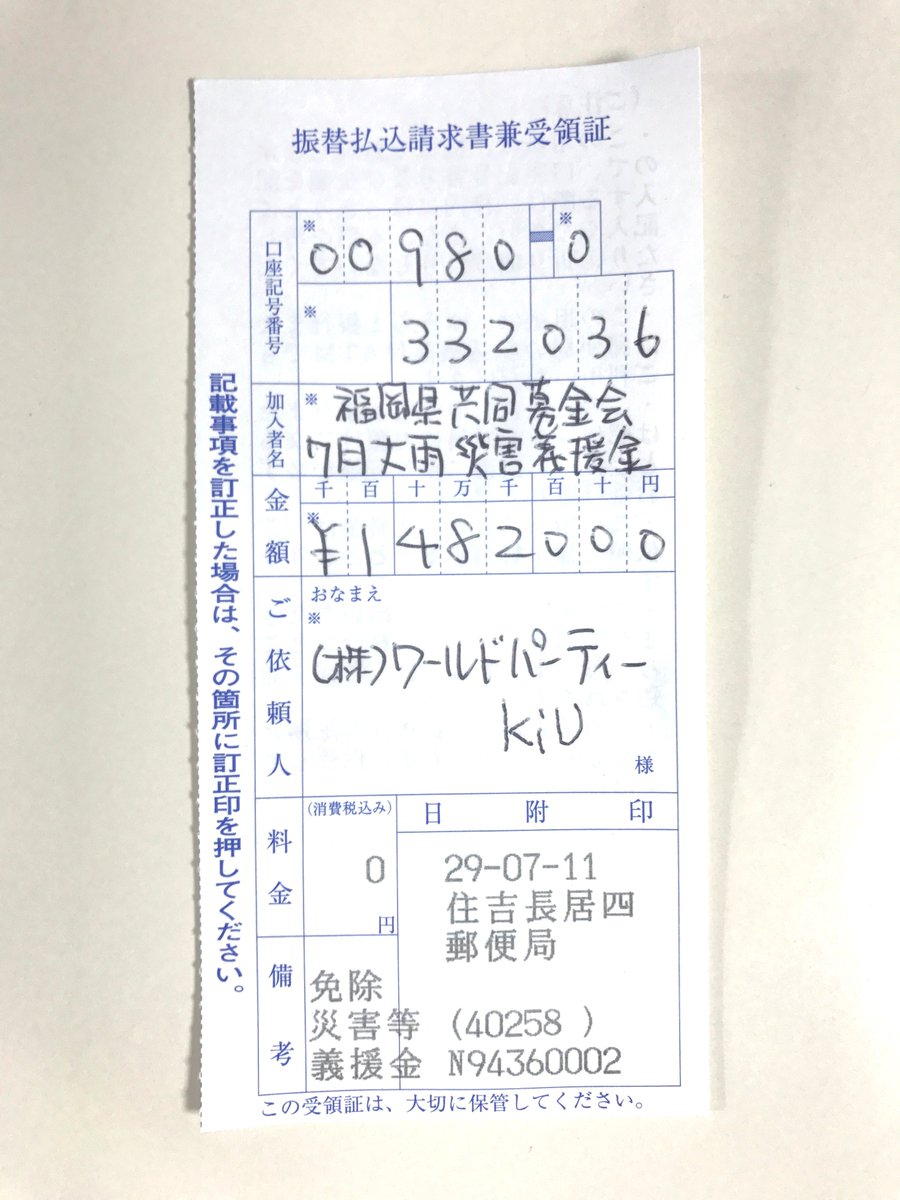 振替払込請求書兼受領証
口座記号番号
※ 00980-※0
※ 332036
加入者名
※ 福岡県共同募金会
7月大雨災害義援金
金額
千百十万千百十円
※ ¥1482000
ご依頼人
おなまえ
※
(株)ワールドパーティー
KiU
様
料金
(消費税込み)
0
円
日附印
29-07-11
住吉長居四
郵便局
備考
免除
災害等 (40258 )
義援金 N94360002
この受領証は、大切に保管してください。
記載事項を訂正した場合は、その箇所に訂正印を押してください。